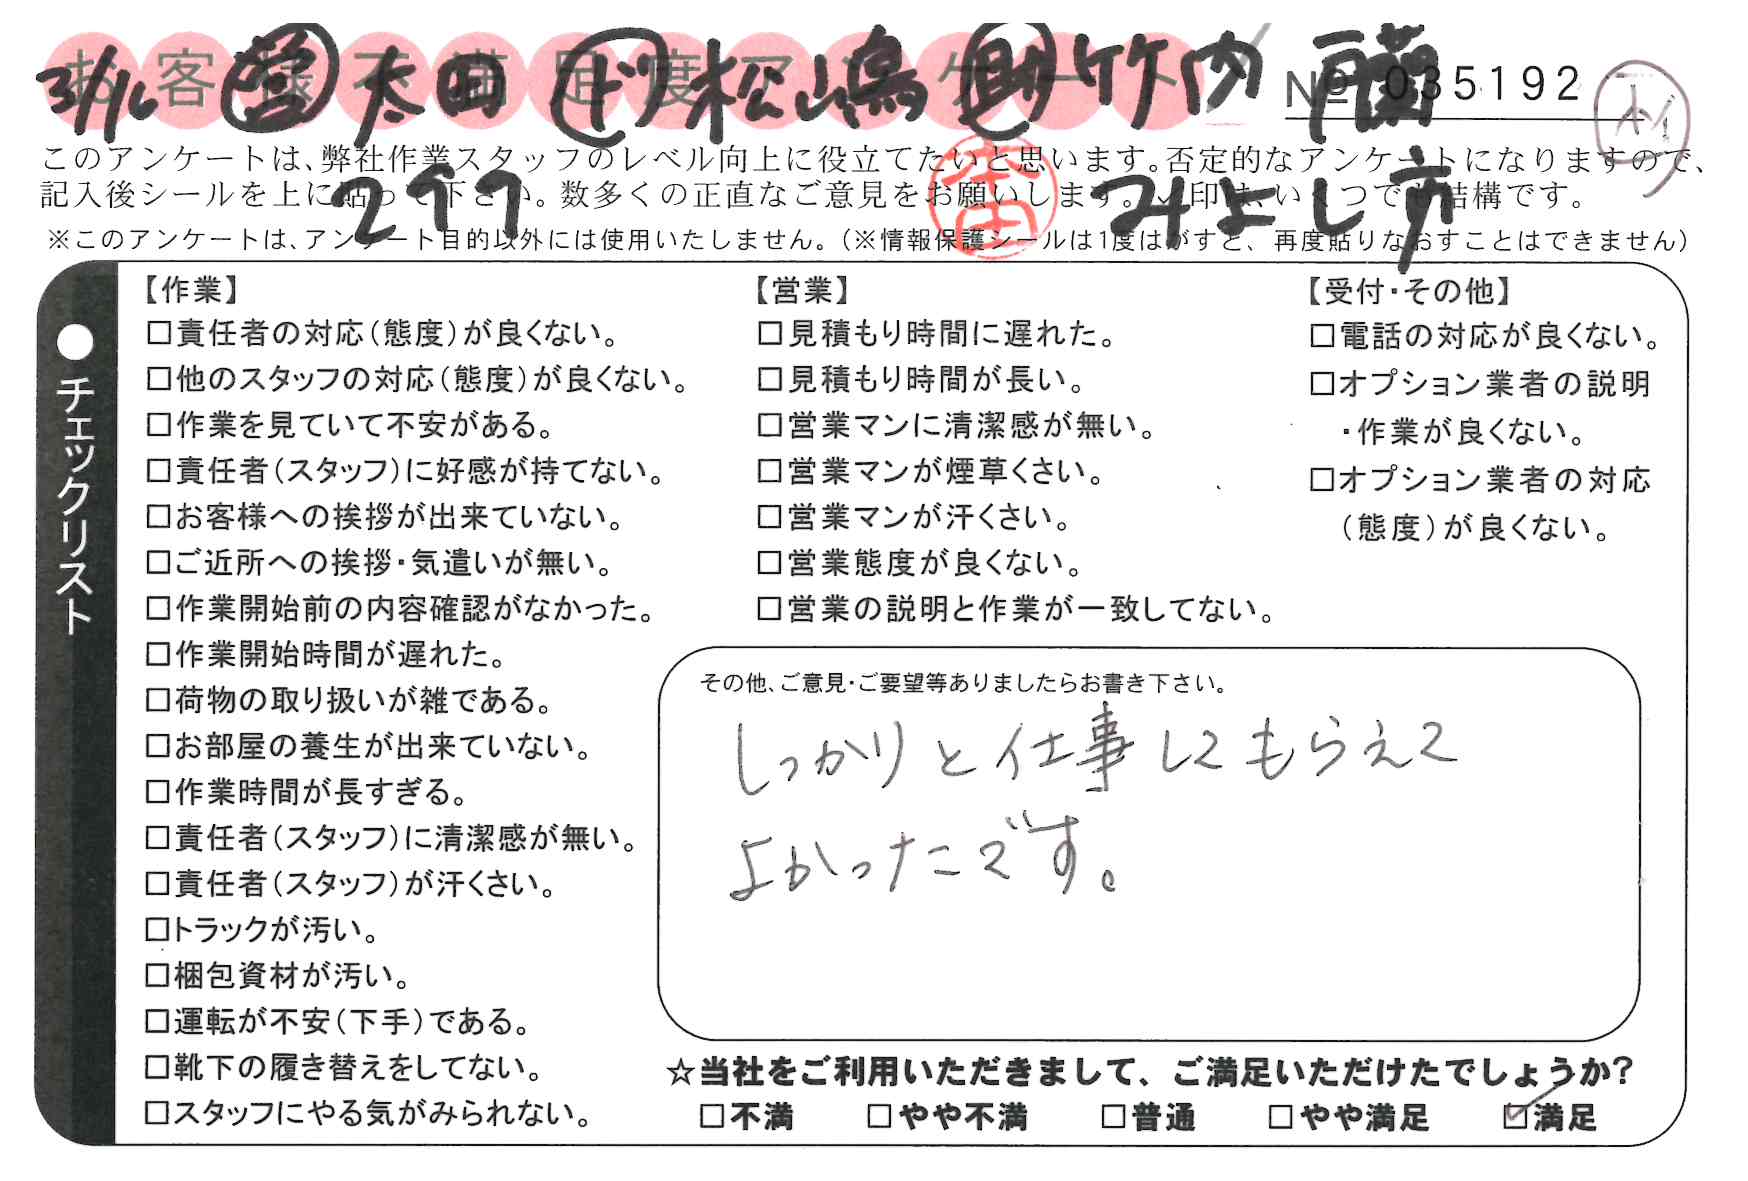 お客様不満足度アンケート
3/16 営 太田 ド 松山嶋 助 竹内 南
№ 035192
このアンケートは、弊社作業スタッフのレベル向上に役立てたいと思います。否定的なアンケートになりますので、
記入後シールを上に貼って下さい。数多くの正直なご意見をお願いします。✓印は、いくつでも結構です。
297 みよし市
※このアンケートは、アンケート目的以外には使用いたしません。（※情報保護シールは1度はがすと、再度貼りなおすことはできません）
●チェックリスト
【作業】
□責任者の対応（態度）が良くない。
□他のスタッフの対応（態度）が良くない。
□作業を見ていて不安がある。
□責任者（スタッフ）に好感が持てない。
□お客様への挨拶が出来ていない。
□ご近所への挨拶・気遣いが無い。
□作業開始前の内容確認がなかった。
□作業開始時間が遅れた。
□荷物の取り扱いが雑である。
□お部屋の養生が出来ていない。
□作業時間が長すぎる。
□責任者（スタッフ）に清潔感が無い。
□責任者（スタッフ）が汗くさい。
□トラックが汚い。
□梱包資材が汚い。
□運転が不安（下手）である。
□靴下の履き替えをしてない。
□スタッフにやる気がみられない。
【営業】
□見積もり時間に遅れた。
□見積もり時間が長い。
□営業マンに清潔感が無い。
□営業マンが煙草くさい。
□営業マンが汗くさい。
□営業態度が良くない。
□営業の説明と作業が一致してない。
【受付・その他】
□電話の対応が良くない。
□オプション業者の説明
・作業が良くない。
□オプション業者の対応
（態度）が良くない。
その他、ご意見・ご要望等ありましたらお書き下さい。
しっかりと仕事してもらえて
よかったです。
☆当社をご利用いただきまして、ご満足いただけたでしょうか?
□不満 □やや不満 □普通 □やや満足 ☑満足